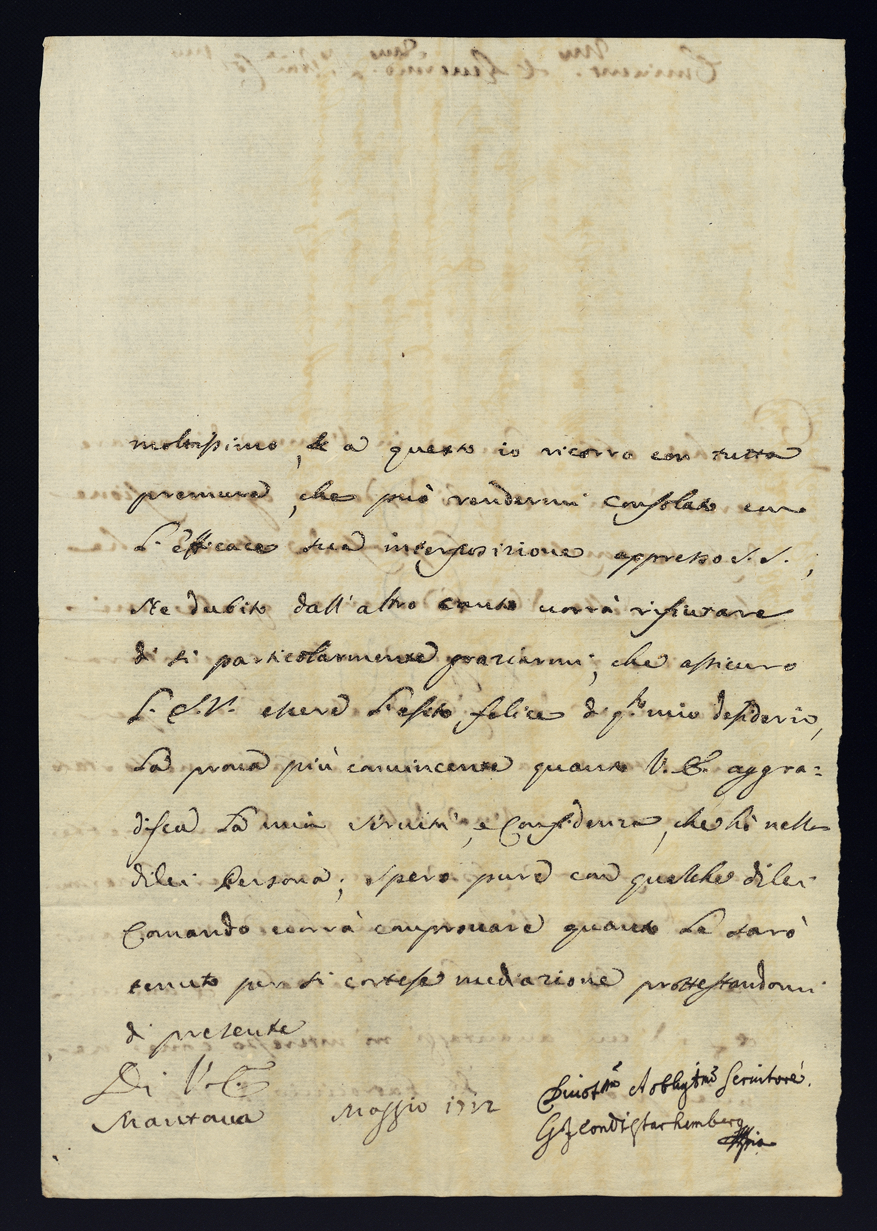 moltissimo, & a questo io ricorro con tutta
premura, che può rendermi consolato con
L'efficace sua interposizione appresso S. S.;
Ne dubito dall'altro canto vorrà rifiutare
di si particolarmente graziarmi, che assicuro
L. E. V. essere L'esito felice di qto mio desiderio,
La prova più convincente quanto V. E. aggra=
disca La mia servitù, e Confidenza, che hò nella
dilei Persona; spero pure con qualche dilei
Comando vorrà comprovare quanto Le sarò
tenuto per si cortese mediazione prottestandomi
di presente
Di V. E.
Mantova Maggio Divotmo et Obbligtmo Servitore.